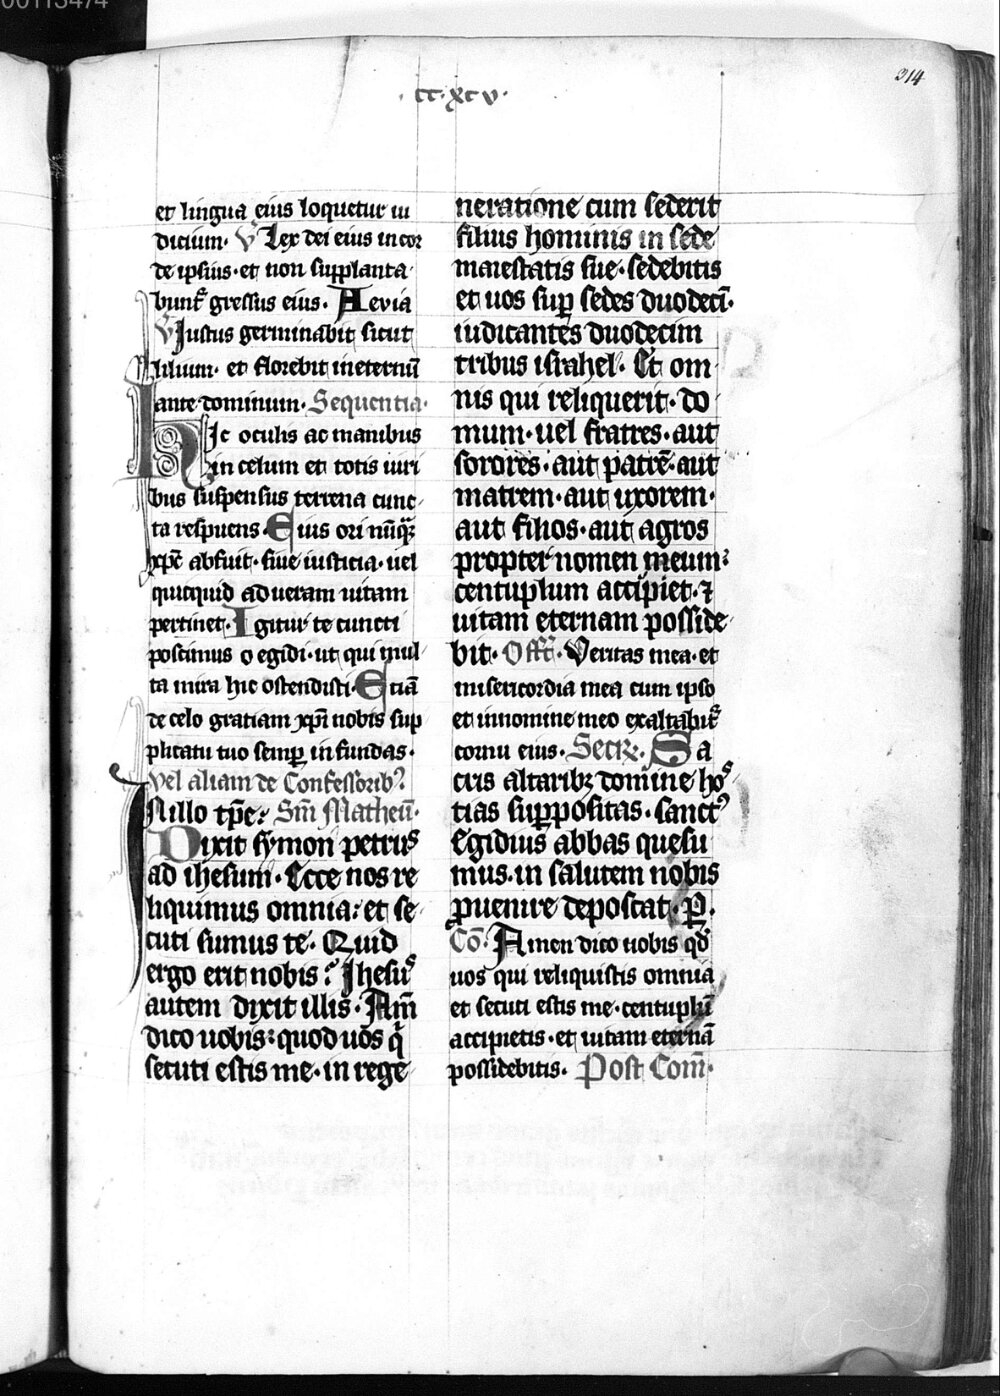 00113474
314
·cc·xcv·
et lingua eius loquetur iu
dicium· V Lex dei eius in cor
de ipsius·et non supplanta
buntʳ gressus eius· Aevia
V Justus germinabit sicut
lilium· et florebit in eternū
ante dominum· Sequentia·
Hic oculis ac manibus
in celum et totis uiri
bus suspensus terrena cunc
ta respuens· Eius ori nūqᷓ
xp̄c abfuit· siue iusticia· uel
quicquid ad ueram uitam
pertinet· Igitur te cuncti
poscimus o egidi·ut qui mul
ta mira hic ostendisti· Eciā
de celo gratiam xp̄i nobis sup
plicatu tuo semꝑ infundas·
Vel aliam de Confessorib⁹
In illo tp̄e: Sm̄ Matheū·
Dixit symon petrus
ad ihesum· Ecce nos re
liquimus omnia: et se
cuti sumus te· Quid
ergo erit nobis? Jhesus
autem dixit illis· Am̄
dico uobis: quod uos q̇
secuti estis me·in rege
neratione cum sederit
filius hominis in sede
maiestatis sue·sedebitis
et uos suꝑ sedes duodecī·
iudicantes duodecim
tribus israhel· Et om
nis qui reliquerit·do
mum·uel fratres·aut
sorores·aut patrē·aut
matrem·aut uxorem·
aut filios·aut agros
propter nomen meum:
centuplum accipiet·⁊
uitam eternam posside
bit· Offt̄· Veritas mea·et
misericordia mea cum ipso
et in nomine meo exaltabitʳ
cornu eius· Secrꝫ· Sa
cris altaribꝫ domine hos
tias suppositas·sanct⁹
Egidius abbas quesu
mus·in salutem nobis
ꝓuenire deposcat· P·
Cō· Amen dico uobis qd̄
uos qui reliquistis omnia
et secuti estis me·centuplū
accipietis·et uitam eternā
possidebitis· Post Com̄·